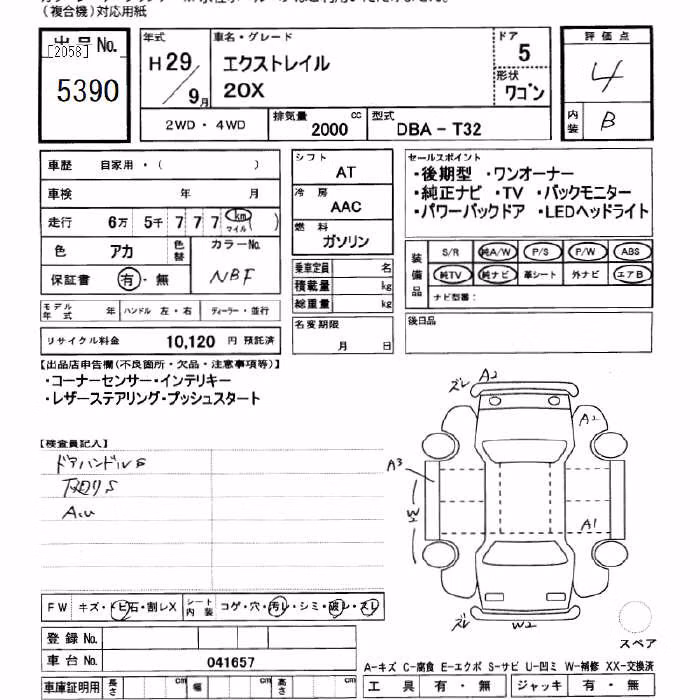 (複合機)対応用紙
出品No.
[2058]
5390
年式
H29/9月
車名・グレード
エクストレイル
20X
ドア
5
形状
ワゴン
評価点
4
内装
B
2WD・4WD
排気量
2000 cc
型式
DBA - T32
車歴 自家用・( )
車検 年 月
走行 6万 5千 7 7 7 km マイル ( )
色 アカ
色替
カラーNo.
NBF
保証書 有・無
シフト
AT
冷房
AAC
燃料
ガソリン
乗車定員 名
積載量 kg
総重量 kg
セールスポイント
・後期型 ・ワンオーナー
・純正ナビ ・TV ・バックモニター
・パワーバックドア ・LEDヘッドライト
装備品
S/R 純A/W P/S P/W ABS
純TV 純ナビ 革シート 外ナビ エアB
ナビ型番:
モデル年式 年 ハンドル 左・右 ディーラー・並行
リサイクル料金 10,120 円 預託済
名変期限
月 日
後日品
【出品店申告欄(不良箇所・欠品・注意事項等)】
・コーナーセンサー・インテリキー
・レザーステアリング・プッシュスタート
【検査員記入】
ドアハンドルS
A3
W2
ズレ A2
A2
A1
ズレ W2
スペア
FW キズ・トビ石・割レX
シート内装 コゲ・穴・汚レ・シミ・破レ・スレ
登録No.
車台No. 041657
車庫証明用 長さ cm 幅 cm 高さ cm
A-キズ C-腐食 E-エクボ S-サビ U-凹ミ W-補修 XX-交換済
工具 有・無 ジャッキ 有・無